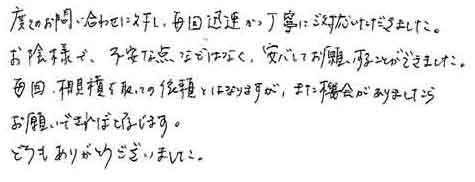 度々のお問い合わせに対し、毎回迅速かつ丁寧にご対応いただきました。
お陰様で、不安な点などはなく、安心してお願いすることができました。
毎回、相見積を取っての依頼とはなりますが、また機会がありましたら
お願いできればと存じます。
どうもありがとうございました。